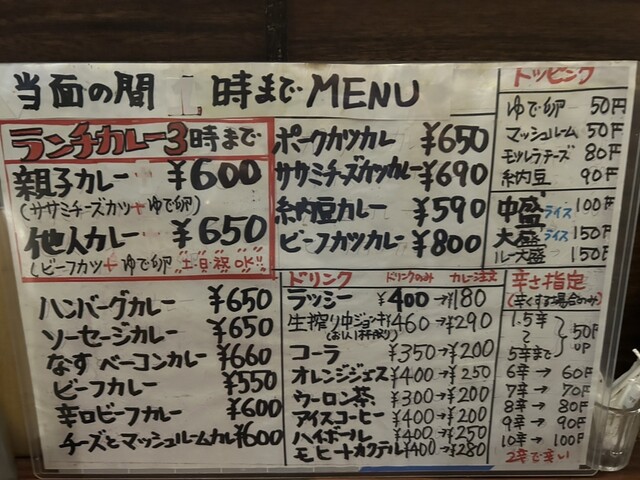 当面の間 1時までMENU
ランチカレー3時まで
親子カレー ¥600
(ササミチーズカツ+ゆで卵)
他人カレー ¥650
(ビーフカツ+ゆで卵 土日祝OK!!
ハンバーグカレー ¥650
ソーセージカレー ¥650
なすベーコンカレー ¥660
ビーフカレー ¥550
辛口ビーフカレー ¥600
チーズとマッシュルームカレ ¥600
ポークカツカレ ¥650
ササミチーズカツカレー ¥690
納豆カレー ¥590
ビーフカツカレー ¥800
ドリンク ドリンクのみ カレー注文
ラッシー ¥400→¥180
生搾り中ジョッキ ¥460→¥290
(お1人1杯限り)
コーラ ¥350→¥200
オレンジジュース ¥400→¥250
ウーロン茶 ¥300→¥200
アイスコーヒー ¥400→¥200
ハイボール ¥400→¥250
モヒートカクテル ¥400→¥280
トッピング
ゆで卵 50円
マッシュルーム 50円
モッツレラチーズ 80円
納豆 90円
中盛ライス 100円
大盛ライス 150円
ルー大盛 150円
辛さ指定
(辛くする場合のみ)
1.5辛
〜
5辛まで
50円UP
6辛→60円
7辛→70円
8辛→80円
9辛→90円
10辛→100円
2辛で辛い